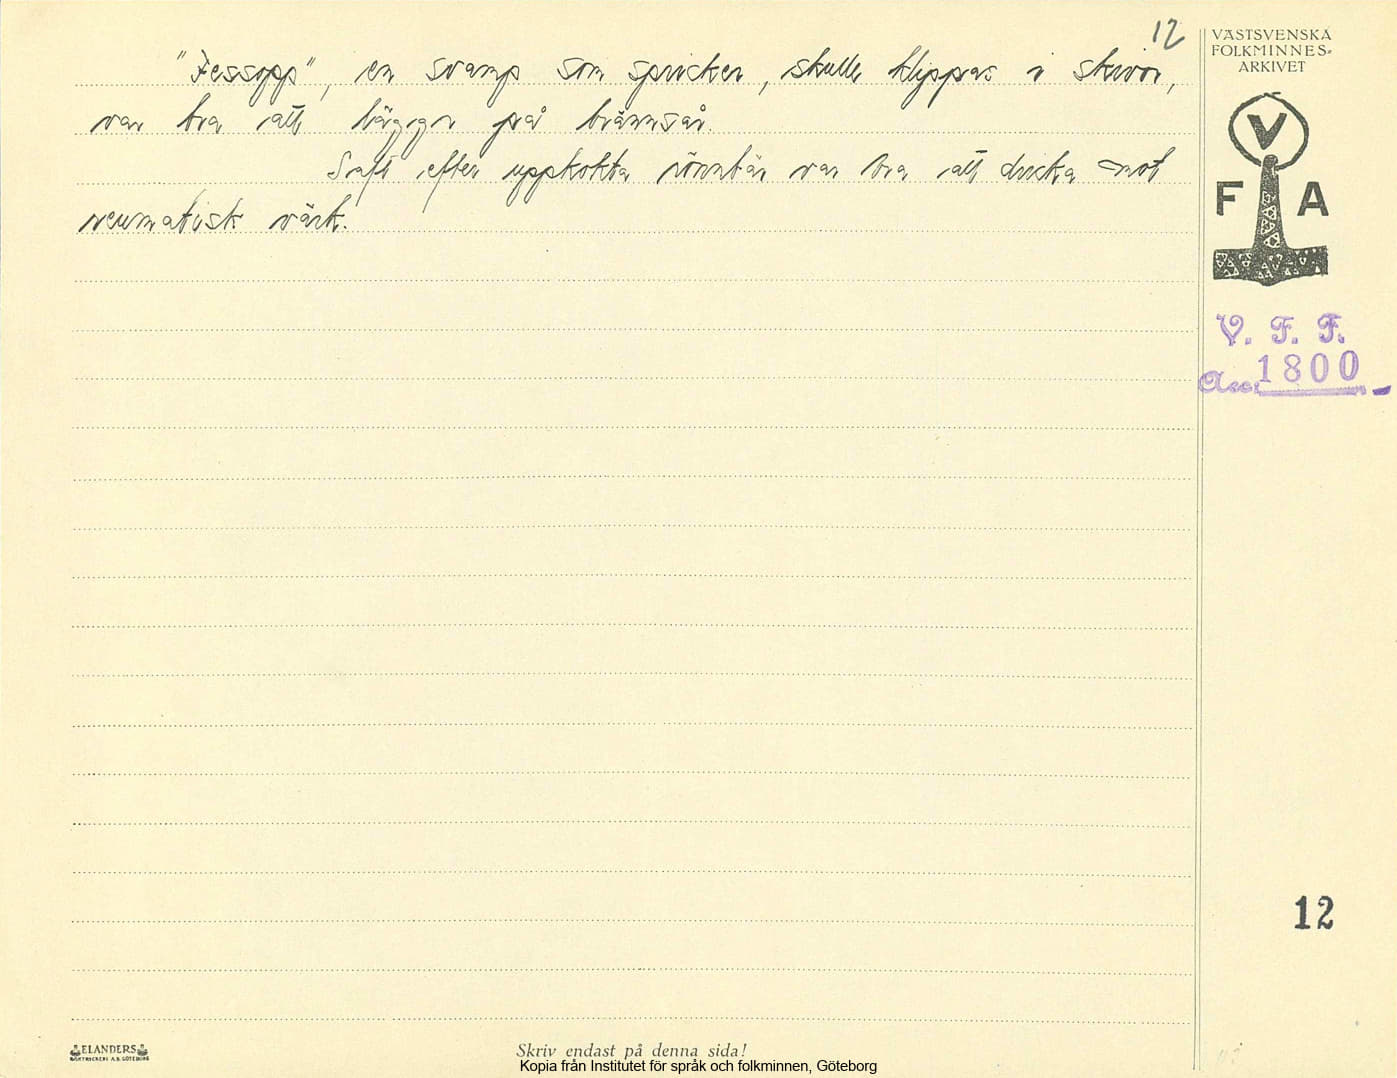 12
"Fessopp", en svamp som spricker, skulle klippas i skivor,
var bra att lägga på brännsår.
Saft efter uppkokta rönnbär var bra att dricka mot
reumatisk värk.
VÄSTSVENSKA
FOLKMINNES-
ARKIVET
V
F A
V. F. F.
Acc. 1800
12
ELANDERS
BOKTRYCKERI A.B. GÖTEBORG
Skriv endast på denna sida!
Kopia från Institutet för språk och folkminnen, Göteborg